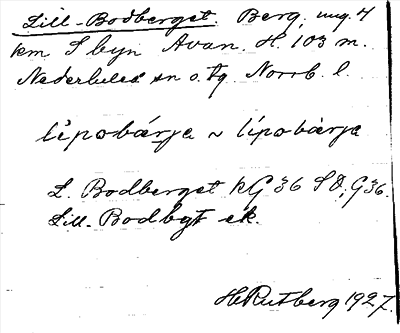 Lill-Bodberget. Berg, ung. 4
km S byn Avan. H. 103 m.
Nederluleå sn o. tg Norrb. l.
lìpobárja ~ lípobàrja
L. Bodberget kG 36 SO, G36.
Lill-Bodbgt ek.
H. Rutberg 1927.